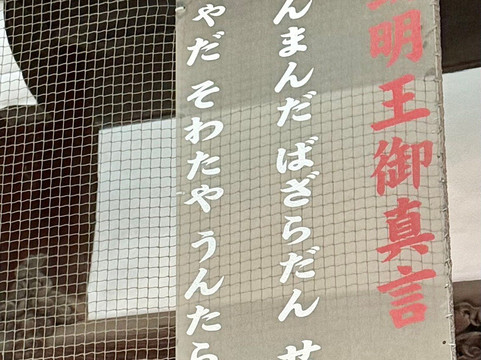 明王御真言
んまんだ ばざらだん せ
ゃだ そわたや うんたら